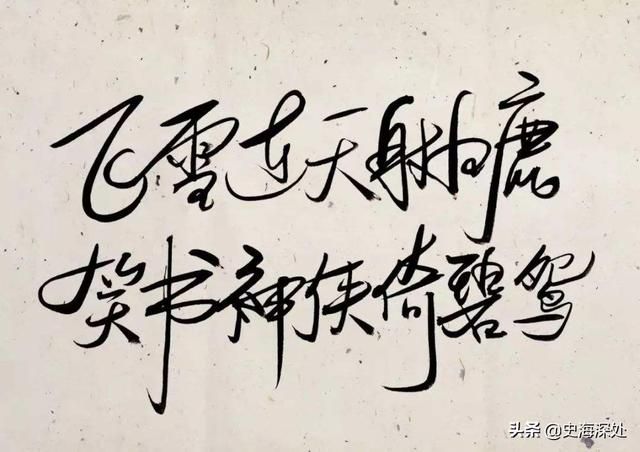 飞雪连天射白鹿
笑书神侠倚碧鸳
头条 @史海深处